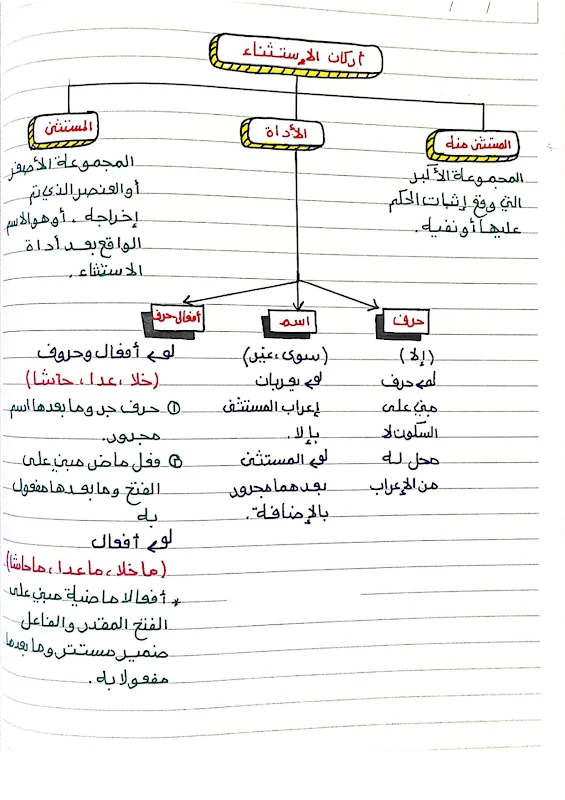 أركان الإستثناء
المستثنى منه
المجموعة الأكبر
التي وقع إثبات الحكم
عليها أو نفيه.
الأداة
المستثنى
المجموعة الأصغر
أو العنصر الذي تم
إخراجه، أو هو الاسم
الواقع بعد أداة
الاستثناء.
حرف
(إلا)
حرف
مبني على
السكون لا
محل له
من الإعراب
اسم
(سوى، غير)
يعربان
إعراب المستثنى
بإلا.
المستثنى
بعدهما مجرور
بالإضافة.
أفعال-حرف
أفعال وحروف
(خلا، عدا، حاشا)
① حرف جر وما بعدها اسم
مجرور.
② فعل ماض مبني على
الفتح وما بعدها مفعول
به
أفعال
(ما خلا، ما عدا، ما حاشا)
* أفعالا ماضية مبني على
الفتح المقدر والفاعل
ضمير مستتر وما بعدها
مفعولا به.